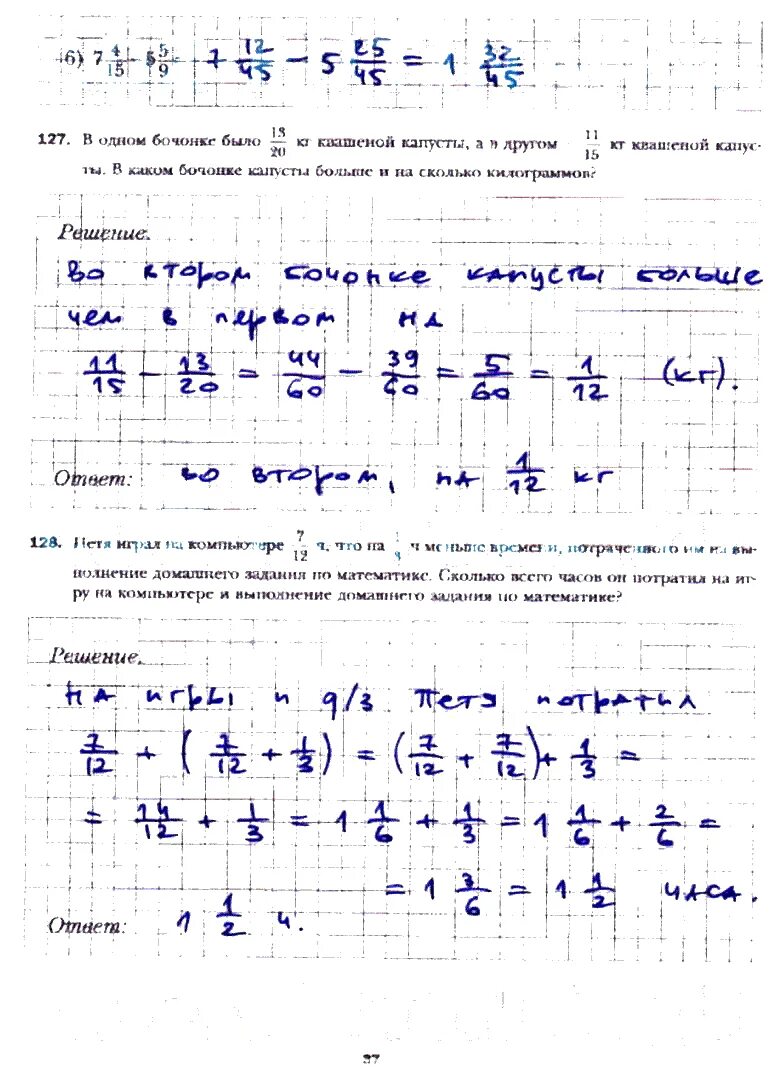 6) 7 4/15 - 5 5/9 7 12/45 - 5 25/45 = 1 32/45
127. В одном бочонке было 13/20 кг квашеной капусты, а в другом 11/15 кг квашеной капус-
ты. В каком бочонке капусты больше и на сколько килограммов?
Решение.
Во втором бочонке капусты больше
чем в первом на
11/15 - 13/20 = 44/60 - 39/60 = 5/60 = 1/12 (кг).
Ответ: во втором, на 1/12 кг
128. Петя играл на компьютере 7/12 ч, что на 1/3 ч меньше времени, потраченного им на вы-
полнение домашнего задания по математике. Сколько всего часов он потратил на иг-
ру на компьютере и выполнение домашнего задания по математике?
Решение.
На игры и д/з Петя потратил
7/12 + (7/12 + 1/3) = (7/12 + 7/12) + 1/3 =
= 14/12 + 1/3 = 1 1/6 + 1/3 = 1 1/6 + 2/6 =
= 1 3/6 = 1 1/2 часа.
Ответ: 1 1/2 ч.
37